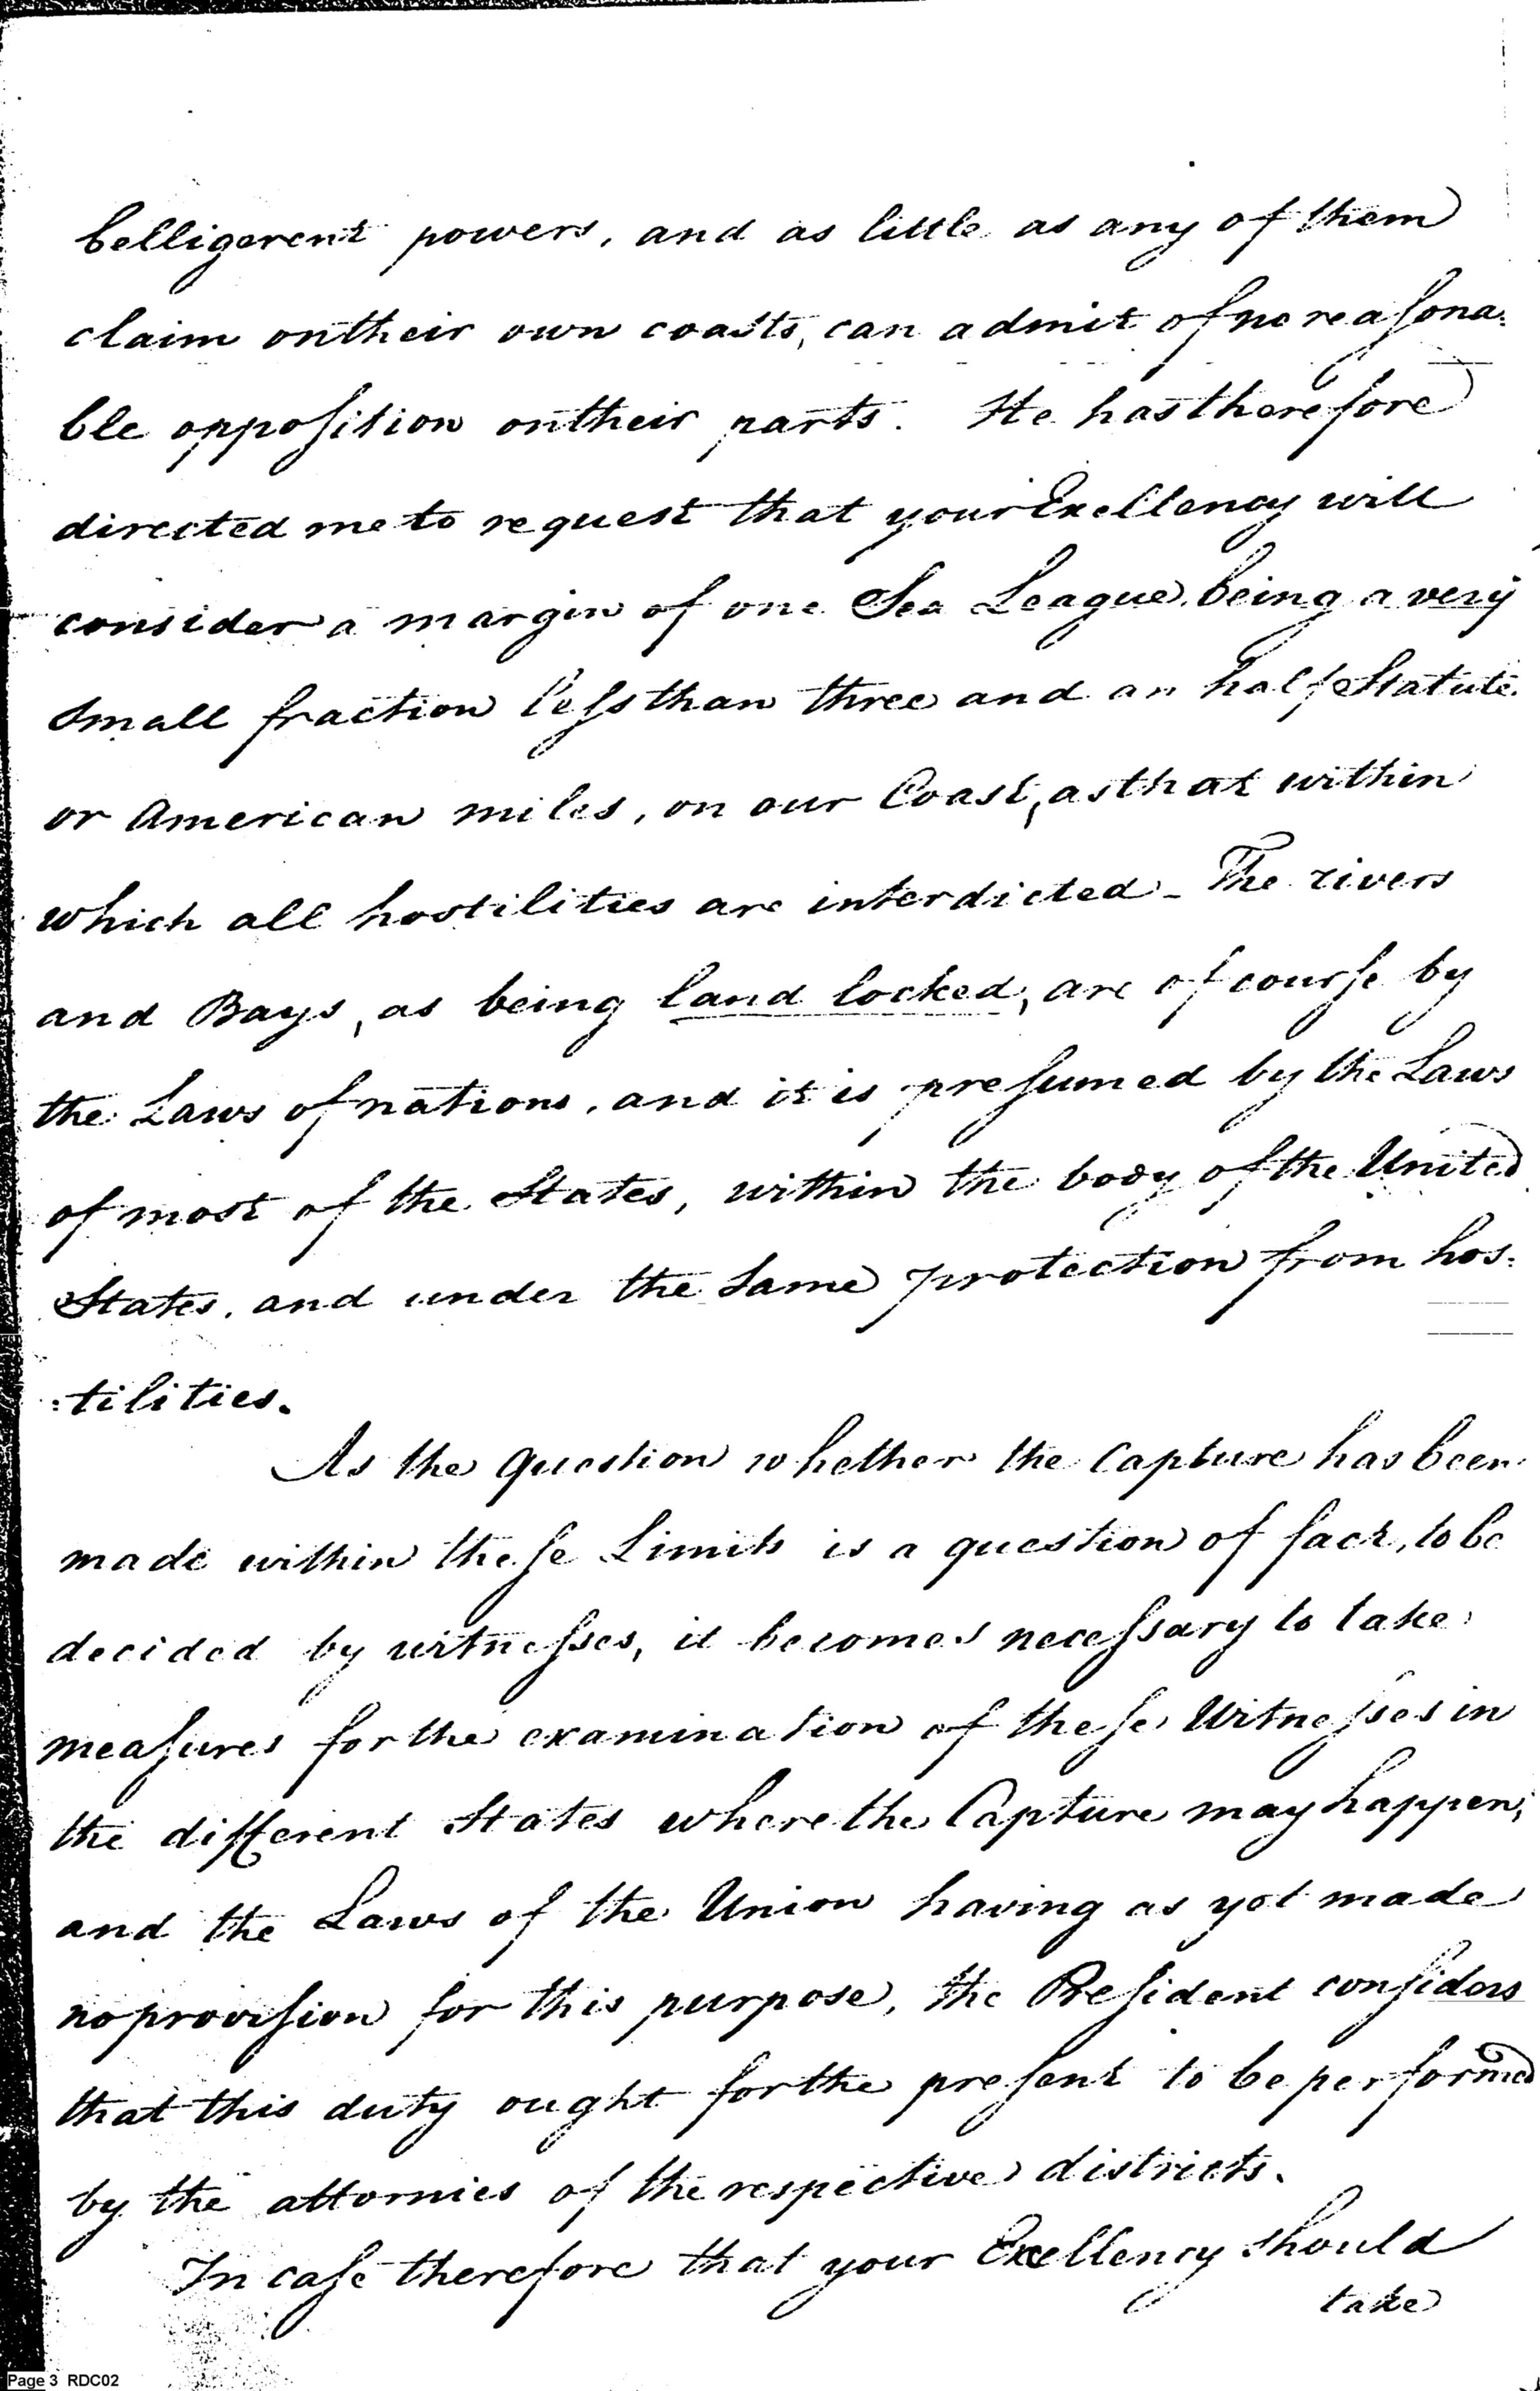 belligerent powers, and as little as any of them
claim on their own coasts, can admit of no reasona:
ble opposition on their parts. He has therefore
directed me to request that your Exellency will
consider a margin of one Sea League, being a very
small fraction less than three and an half Statute
or American miles, on our Coast, as that within
which all hostilities are interdicted - The rivers
and Bays, as being land locked, are of course by
the Laws of nations, and it is presumed by the Laws
of most of the States, within the body of the United
States, and under the same protection from hos:
:tilities.
As the question whether the Capture has been
made within these Limits is a question of fact, to be
decided by witnesses, it becomes necessary to take
measures for the examination of these Witnesses in
the different States where the Capture may happen,
and the Laws of the Union having as yet made
no provision for this purpose, the President considers
that this duty ought for the present to be performed
by the attornies of the respective districts.
In case therefore that your Exellency should
take
Page 3 RDC02